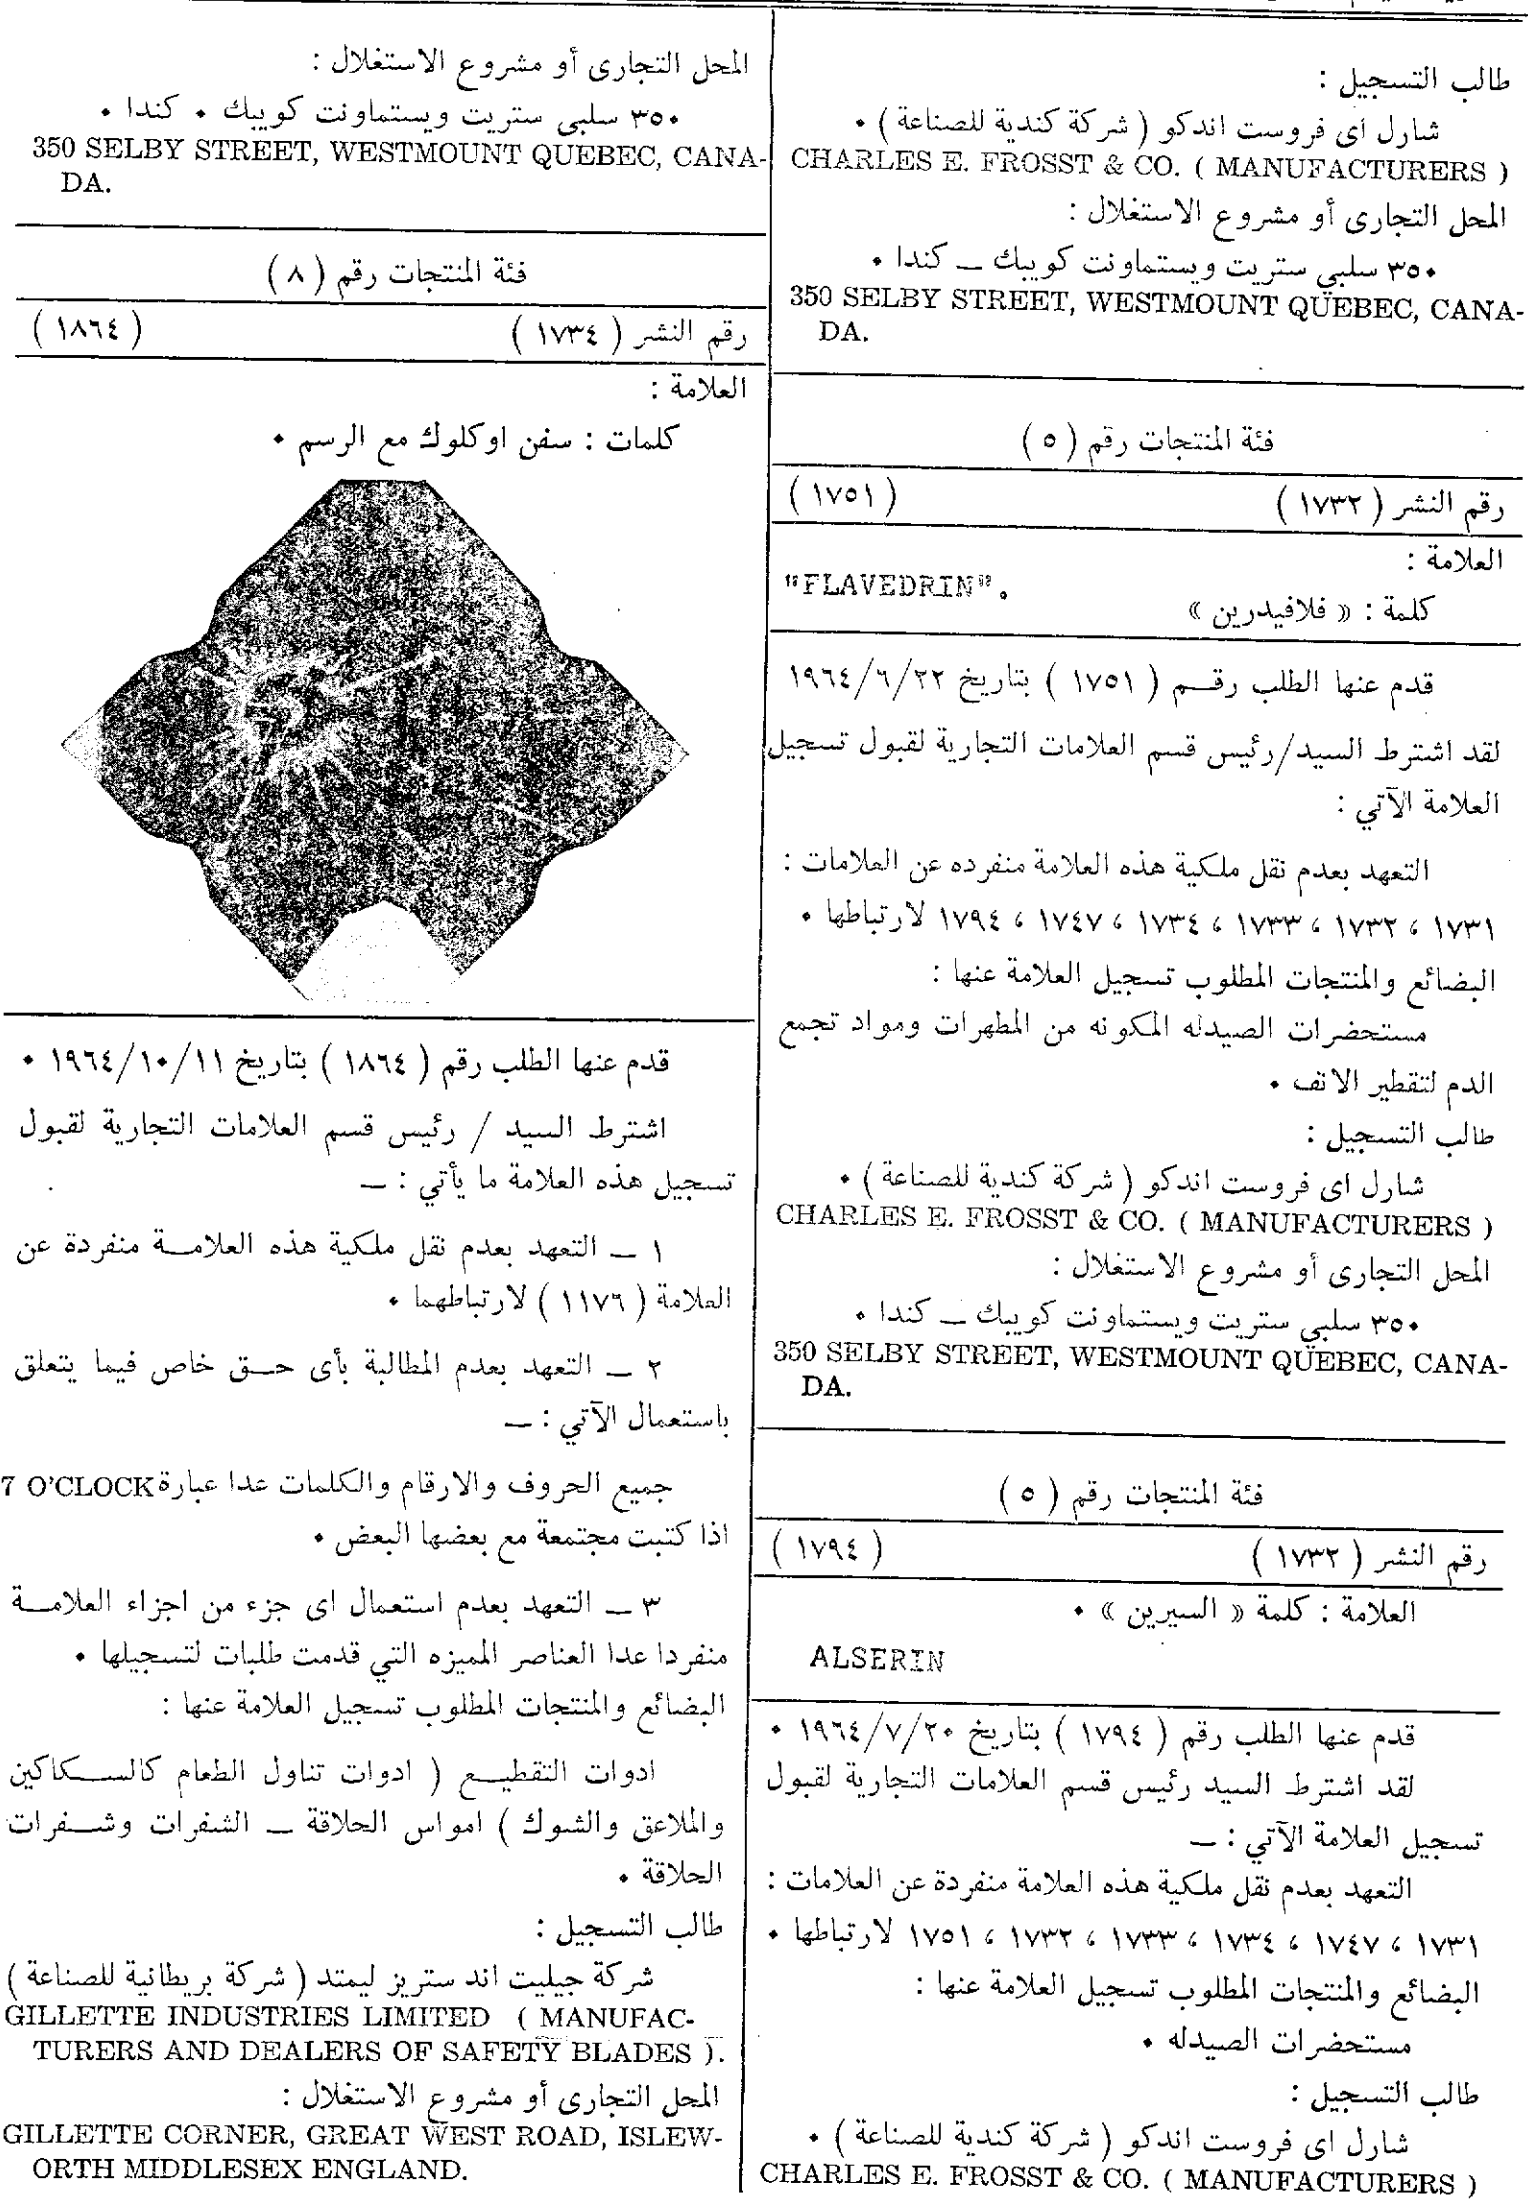 طالب التسجيل :
شارل اى فروست اندكو ( شركة كندية للصناعة ) ٠
CHARLES E. FROSST & CO. ( MANUFACTURERS )
المحل التجارى أو مشروع الاستغلال :
٣٥٠ سلبي ستريت ويستماونت كويبك ــ كندا ٠
350 SELBY STREET, WESTMOUNT QUEBEC, CANA-
DA.
فئة المنتجات رقم ( ٥ )
رقم النشر ( ١٧٣٢ ) ( ١٧٥١ )
العلامة :
"FLAVEDRIN".
كلمة : « فلافيدرين »
قدم عنها الطلب رقــم ( ١٧٥١ ) بتاريخ ١٩٦٤/٦/٢٢
لقد اشترط السيد/رئيس قسم العلامات التجارية لقبول تسجيل
العلامة الآتي :
التعهد بعدم نقل ملكية هذه العلامة منفرده عن العلامات :
١٧٣١ ، ١٧٣٢ ، ١٧٣٣ ، ١٧٣٤ ، ١٧٤٧ ، ١٧٩٤ لارتباطها ٠
البضائع والمنتجات المطلوب تسجيل العلامة عنها :
مستحضرات الصيدله المكونه من المطهرات ومواد تجمع
الدم لتقطير الانف ٠
طالب التسجيل :
شارل اى فروست اندكو ( شركة كندية للصناعة ) ٠
CHARLES E. FROSST & CO. ( MANUFACTURERS )
المحل التجارى أو مشروع الاستغلال :
٣٥٠ سلبي ستريت ويستماونت كويبك ــ كندا ٠
350 SELBY STREET, WESTMOUNT QUEBEC, CANA-
DA.
فئة المنتجات رقم ( ٥ )
رقم النشر ( ١٧٣٢ ) ( ١٧٩٤ )
العلامة : كلمة « السيرين » ٠
ALSERIN
قدم عنها الطلب رقم ( ١٧٩٤ ) بتاريخ ١٩٦٤/٧/٢٠ ٠
لقد اشترط السيد رئيس قسم العلامات التجارية لقبول
تسجيل العلامة الآتي : ــ
التعهد بعدم نقل ملكية هذه العلامة منفردة عن العلامات :
١٧٣١ ، ١٧٤٧ ، ١٧٣٤ ، ١٧٣٣ ، ١٧٣٢ ، ١٧٥١ لارتباطها ٠
البضائع والمنتجات المطلوب تسجيل العلامة عنها :
مستحضرات الصيدله ٠
طالب التسجيل :
شارل اى فروست اندكو ( شركة كندية للصناعة ) ٠
CHARLES E. FROSST & CO. ( MANUFACTURERS )
المحل التجارى أو مشروع الاستغلال :
٣٥٠ سلبى ستريت ويستماونت كويبك ٠ كندا ٠
350 SELBY STREET, WESTMOUNT QUEBEC, CANA-
DA.
فئة المنتجات رقم ( ٨ )
رقم النشر ( ١٧٣٤ ) ( ١٨٦٤ )
العلامة :
كلمات : سفن اوكلوك مع الرسم ٠
قدم عنها الطلب رقم ( ١٨٦٤ ) بتاريخ ١٩٦٤/١٠/١١ ٠
اشترط السيد / رئيس قسم العلامات التجارية لقبول
تسجيل هذه العلامة ما يأتي : ــ
١ ــ التعهد بعدم نقل ملكية هذه العلامــة منفردة عن
العلامة ( ١١٧٦ ) لارتباطهما ٠
٢ ــ التعهد بعدم المطالبة بأى حــق خاص فيما يتعلق
باستعمال الآتي : ــ
جميع الحروف والارقام والكلمات عدا عبارة 7 O'CLOCK
اذا كتبت مجتمعة مع بعضها البعض ٠
٣ ــ التعهد بعدم استعمال اى جزء من اجزاء العلامــة
منفردا عدا العناصر المميزه التي قدمت طلبات لتسجيلها ٠
البضائع والمنتجات المطلوب تسجيل العلامة عنها :
ادوات التقطيــع ( ادوات تناول الطعام كالســكاكين
والملاعق والشوك ) امواس الحلاقة ــ الشفرات وشــفرات
الحلاقة ٠
طالب التسجيل :
شركة جيليت اند ستريز ليمتد ( شركة بريطانية للصناعة )
GILLETTE INDUSTRIES LIMITED ( MANUFAC-
TURERS AND DEALERS OF SAFETY BLADES ).
المحل التجارى أو مشروع الاستغلال :
GILLETTE CORNER, GREAT WEST ROAD, ISLEW-
ORTH MIDDLESEX ENGLAND.